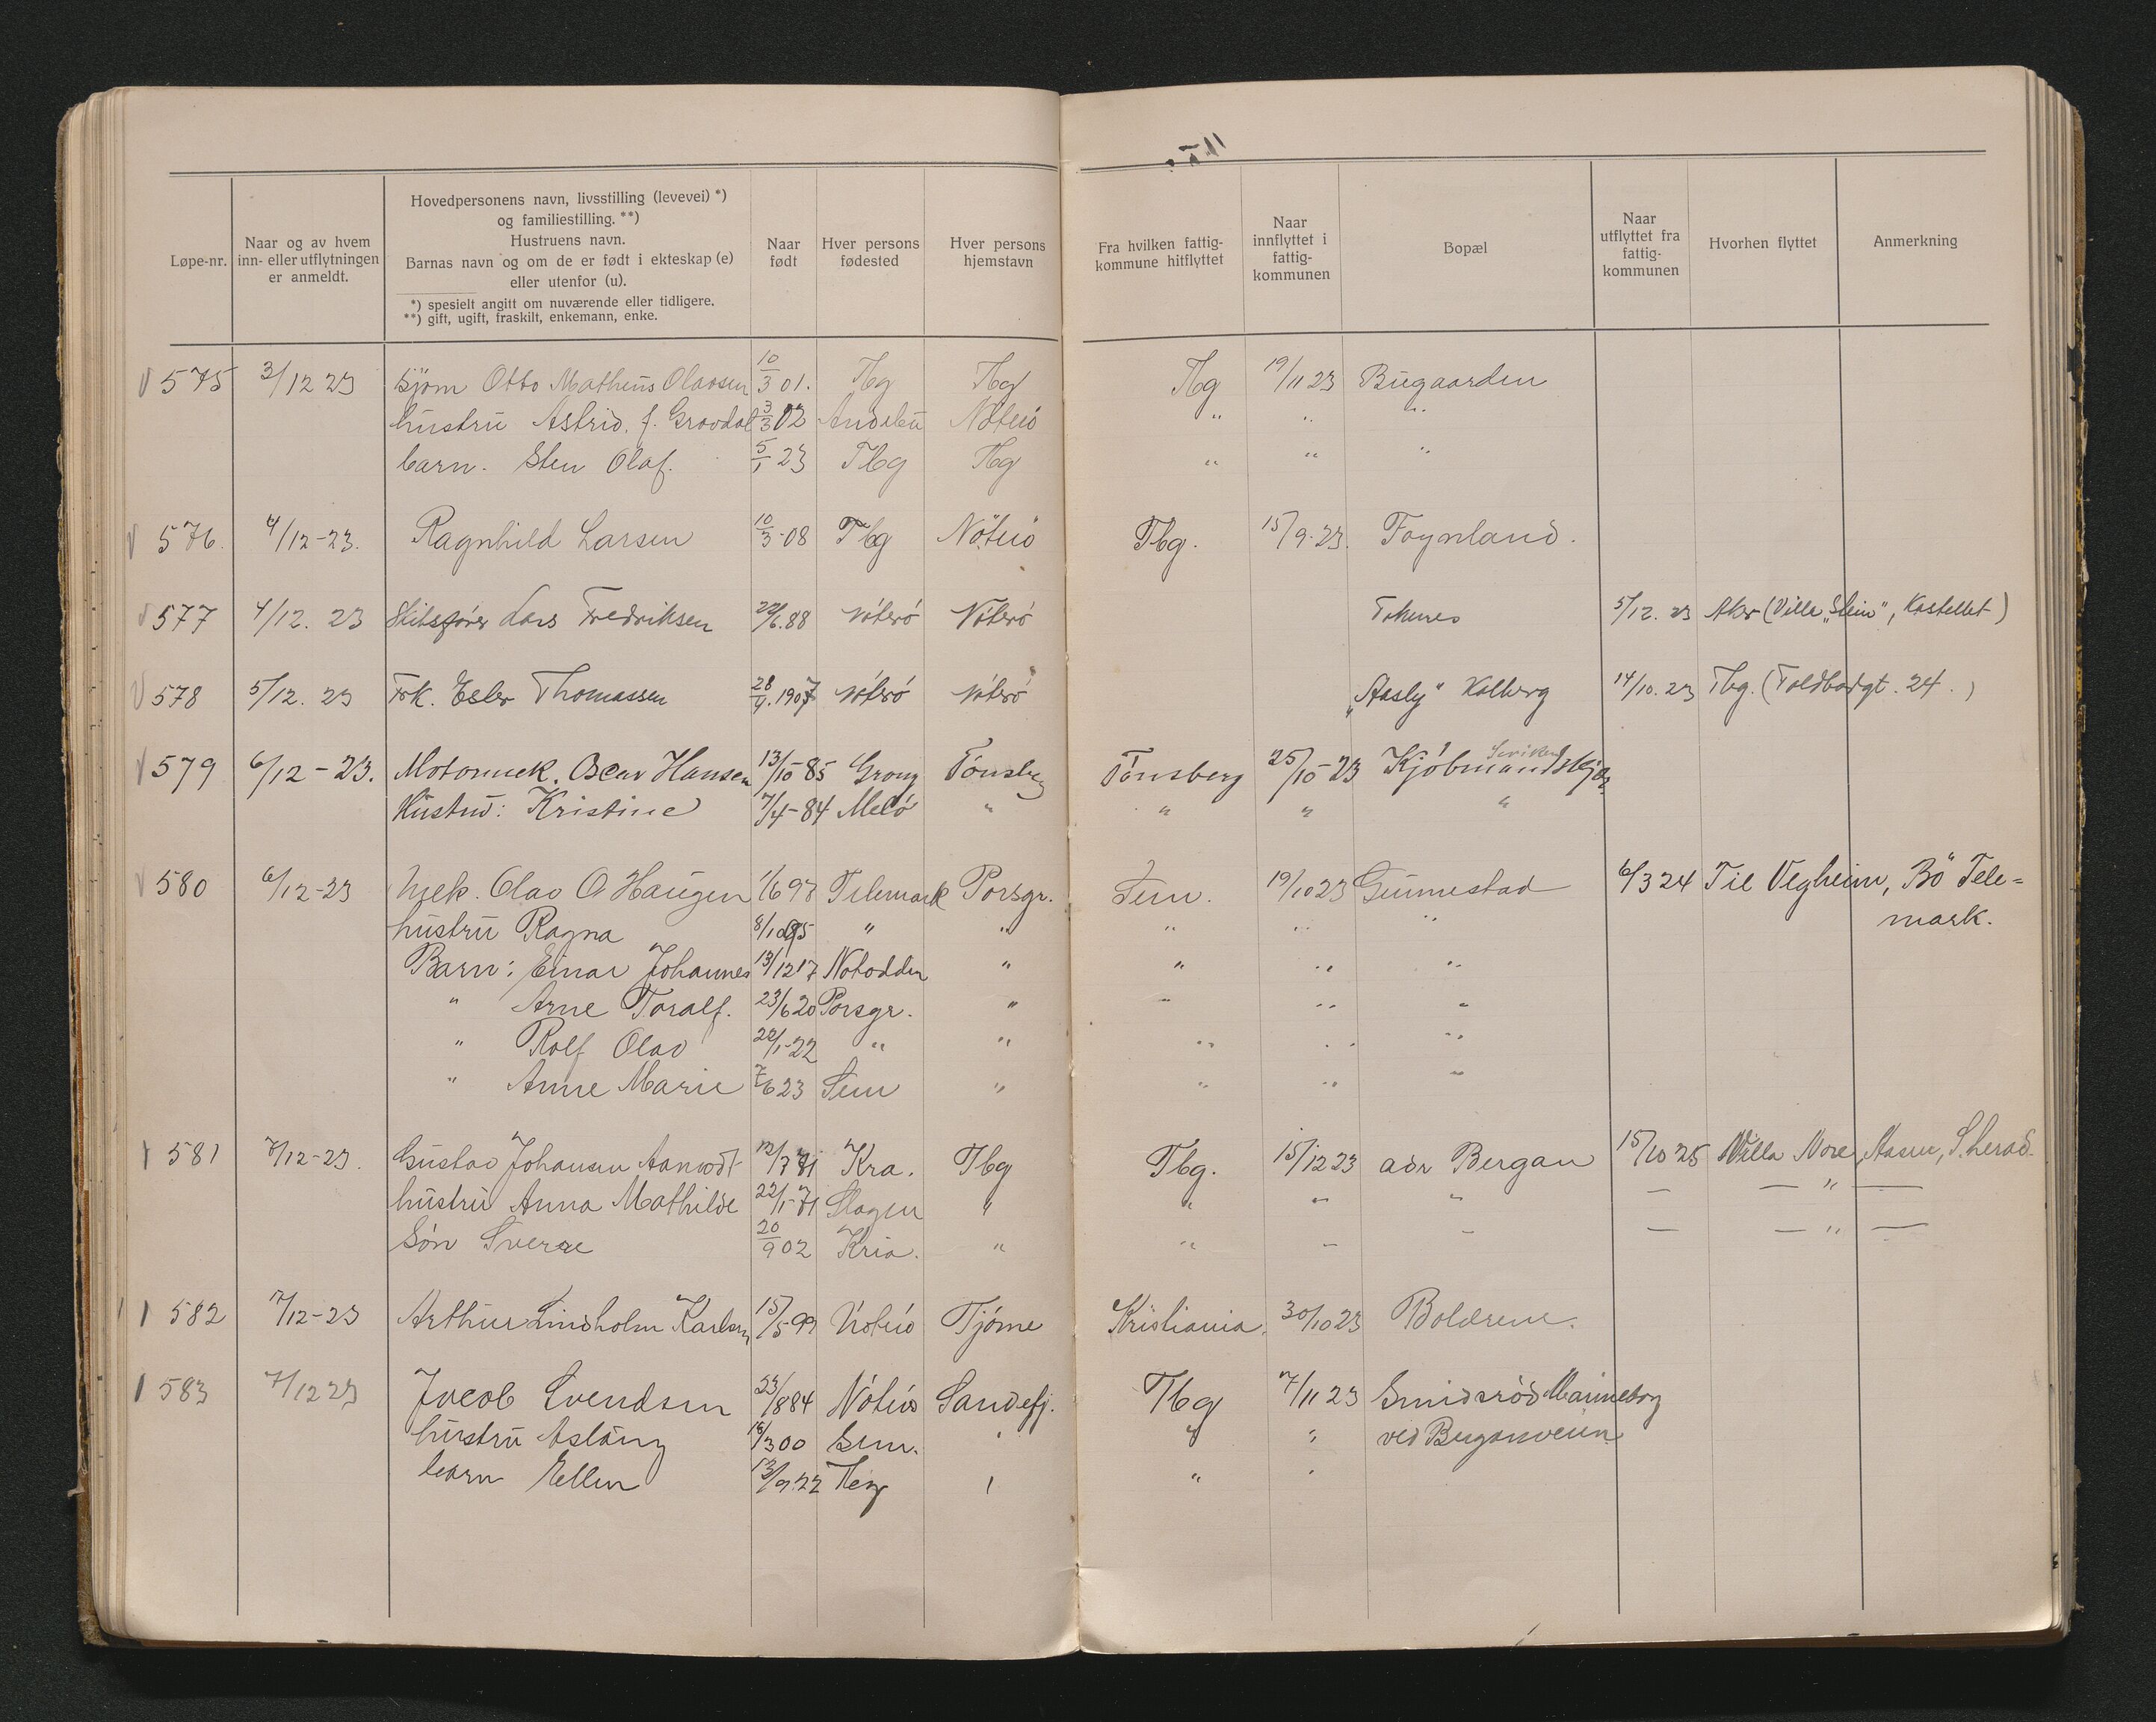 Løpe-nr.
Naar og av hvem inn- eller utflytningen er anmeldt.
Hovedpersonens navn, livsstilling (levevei) *)
og familiestilling. **)
Hustruens navn.
Barnas navn og om de er født i ekteskap (e)
eller utenfor (u).
*) spesielt angitt om nuværende eller tidligere.
**) gift, ugift, fraskilt, enkemann, enke.
Naar født
Hver persons fødested
Hver persons hjemstavn
Fra hvilken fattig-kommune hitflyttet
Naar innflyttet i fattig-kommunen
Bopæl
Naar utflyttet fra fattig-kommunen
Hvorhen flyttet
Anmerkning
575 3/12 23 Otto Matheus Olavsen 10/3 01. Tbg Tbg Tbg 19/11 23 Bugaarden
hustru Astrid. f. Gravdal 3/3 02 Andebu Nöterö " " "
barn. Sten Olaf. 5/1 23 Tbg Tbg " " "
576. 4/12-23. Ragnhild Larsen 10/3-08 Tbg Nöterö Tbg. 15/9-23. Föynland.
577 4/12. 23 Lars Fredriksen 22/6.88 Nöterö Nöterö 5/12. 23 Aker (Villa „Stein", Kastellet)
578 5/12. 23 Frk. Thomassen 28/9.1907 Nöterö Nöterö „Aasly" Kolberg 14/10. 23 Tbg. (Toldbodgt. 24.)
579 6/12-23. Motormek. Oscar Hansen 13/10-85 Grong Tönsberg Tönsberg 25/10-23 Kjöbmandskjær
Hustru: Kristine 7/4-84 Melö " " " "
580 6/12-23 Mek. Olav O Haugen 1/6 97 Telemark Porsgr. Sem. 19/10 23 Gunnestad 6/3 24 Til Vegheim, Bö Tele=
mark.
hustru Ragna 8/10 95 " " " " "
Barn: Einar Johannes 13/12 17 Notodden " " " "
" Arne Toralf. 23/6 20 Porsgr. " " " "
" Rolf Olav 22/1-22 " " " " "
" Anne Marie 7/6 23 Sem " " " "
581 7/12-23. Gustav Johansen 12/7 71 Kra. Tbg Tbg. 15/12 23 Bergan 15/10 25 Villa More, Aasen, S.herad.
hustru Anna Mathilde 22/1-71 Slagen " " " " — — " —
Sön Sverre 20/9 02 Kria. " " – – — — " —
582 7/12-23 Arthur Lindholm Karlsen 15/5-99 Nöterö Tjöme Kristiania. 30/10 23 Bolærne.
583 7/12 23 Jacob Svendsen 23/8 84 Nöterö Sandefj. Tbg 7/11 23 Smidsröd Marineborg
hustru Aslaug 16/3 00 Sem. " " " ved Buganveien
barn Ellen 13/9.22 Tbg " " "